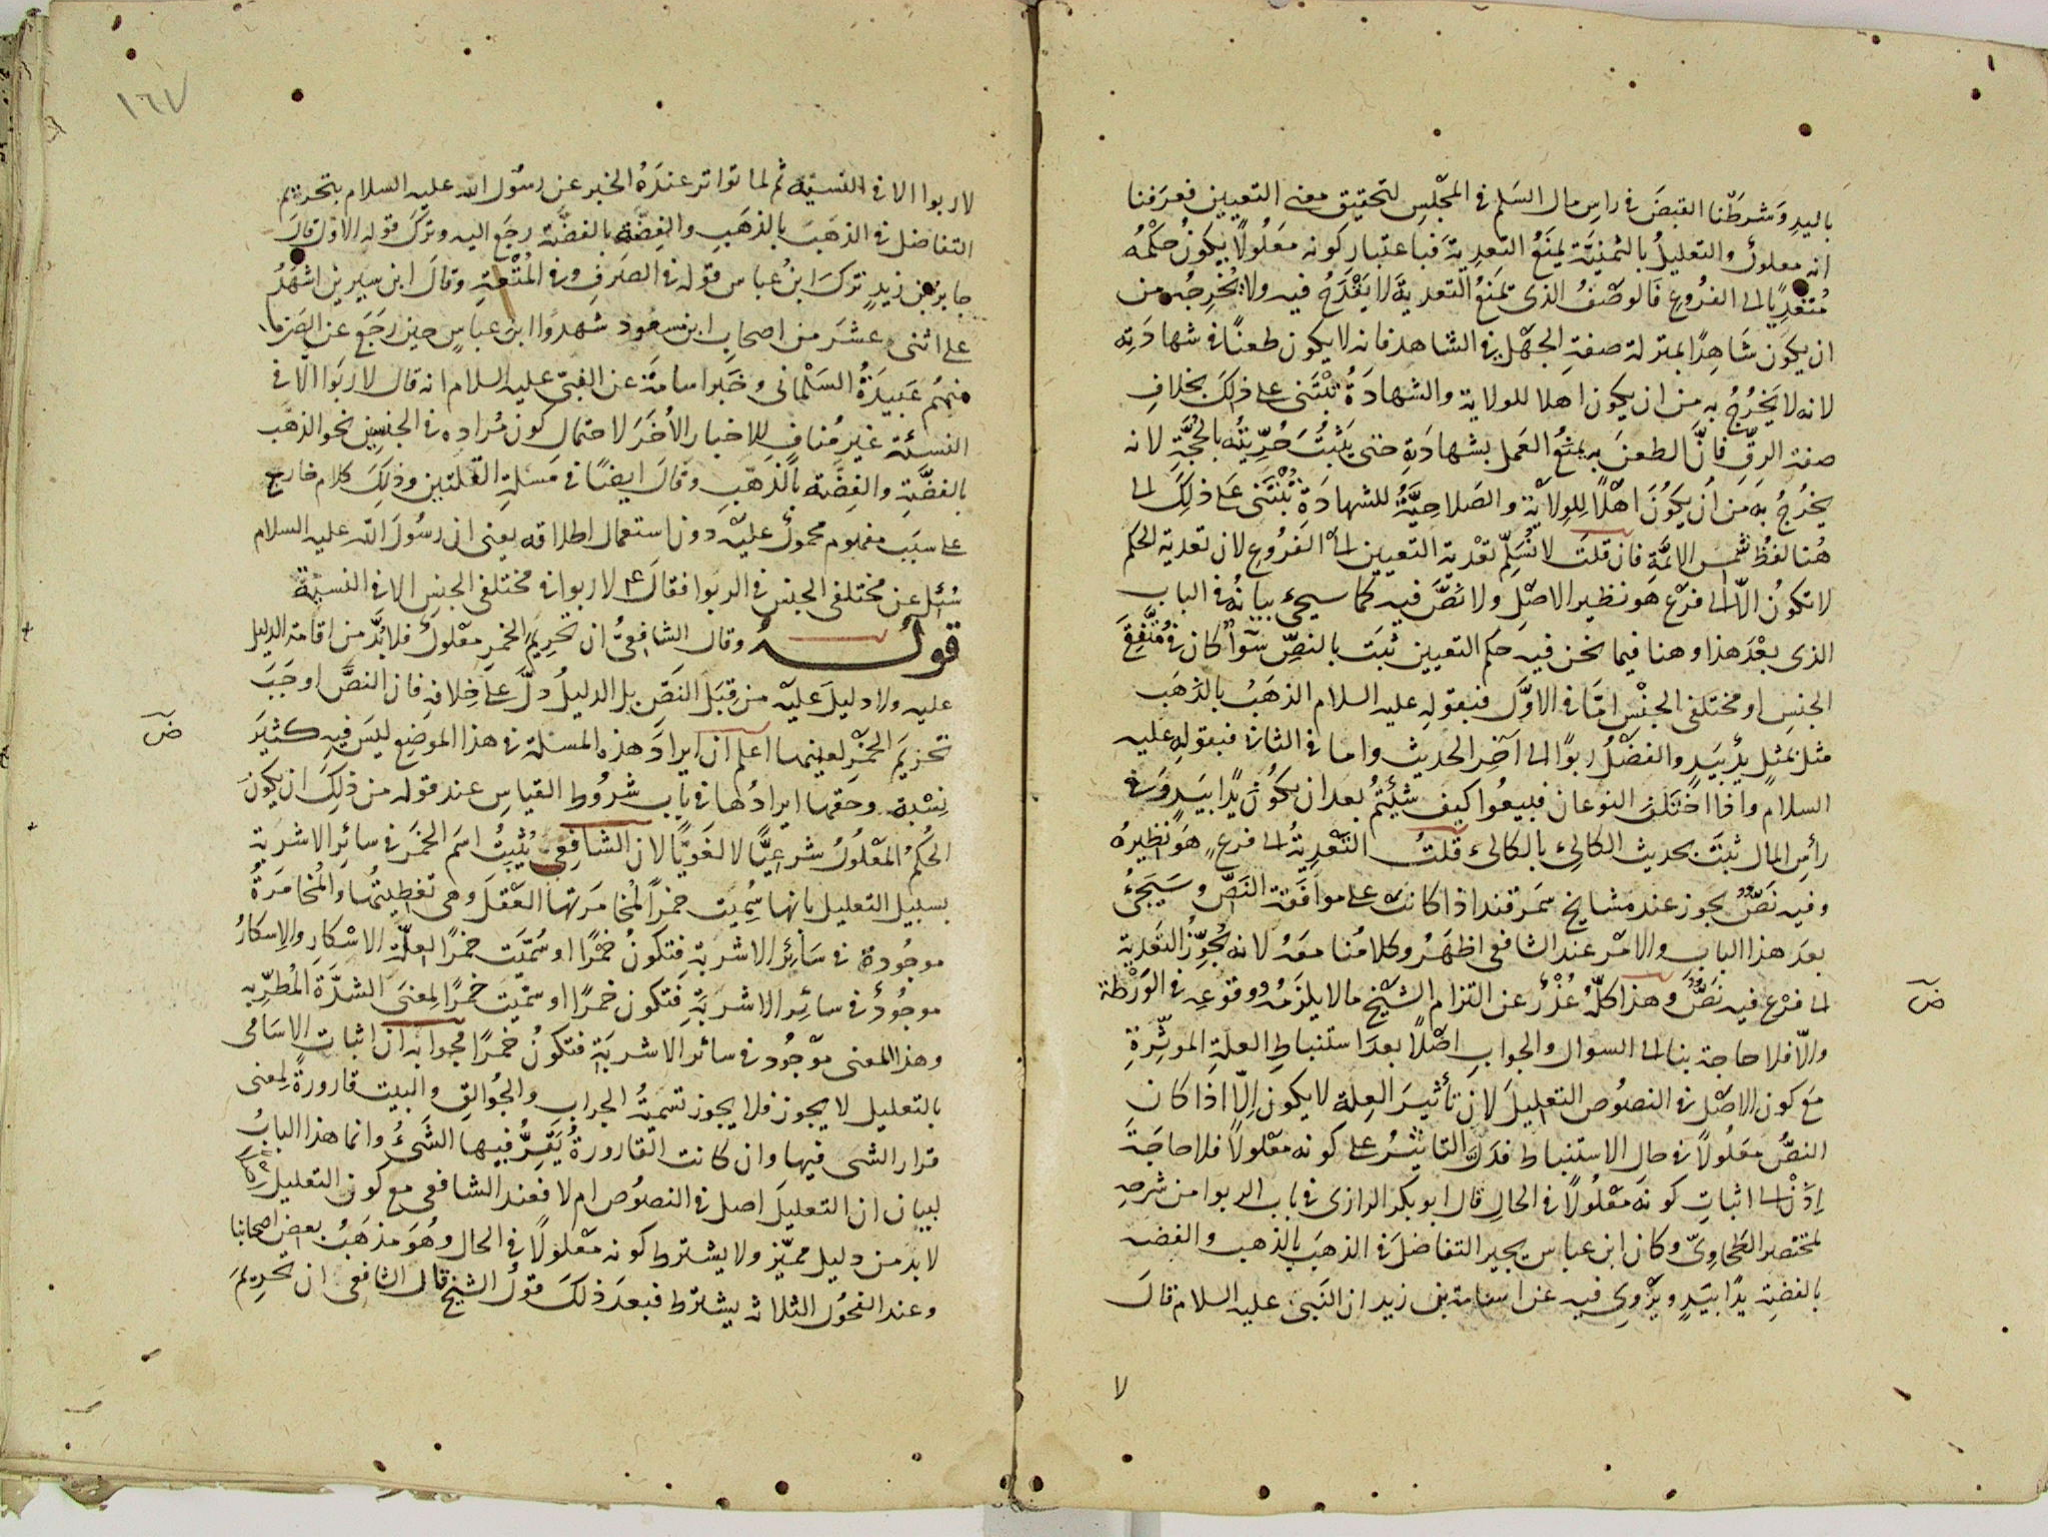 باليد وشرطنا القبض في راس مال السلم في المجلس لتحقيق معنى التعيين فعرفنا
انه معلول والتعليل بالثمنية يمنع التعدية فباعتبار كونه معلولا يكون حكمه
متعديا الى الفروع فالوصف الذى يمنع التعدية لا يقدح فيه ولا يخرجه من
ان يكون شاهدا بمنزلة صفة الجهل في الشاهد فانه لا يكون طعنا في شهادته
لانه لا يخرج به من ان يكون اهلا للولاية والشهادة تبتنى على ذلك بخلاف
صفة الرق فان الطعن به يمنع العمل بشهادته حتى يثبت حريته بالحجة لانه
يخرج به من ان يكون اهلا للولاية والصلاحية للشهادة تبتنى على ذلك الى
هنا لفظ شمس الائمة فان قلت لا نسلم تعدية التعيين الى الفروع لان تعدية الحكم
لا تكون الا الى فرع هو نظير الاصل ولا نص فيه كما سيجئ بيانه في الباب
الذى بعد هذا وهنا فيما نحن فيه حكم التعيين ثبت بالنص سوآ كان في متفق
الجنس او مختلفى الجنس اما في الاول فبقوله عليه السلام الذهب بالذهب
مثل بمثل يد بيد والفضل ربوا الى آخر الحديث واما في الثانى فبقوله عليه
السلام واذا اختلف النوعان فبيعوا كيف شئتم بعد ان يكون يدا بيد وفى
رأس المال ثبت بحديث الكالئ بالكالئ قلت التعدية الى فرع هو نظيره
وفيه نص يجوز عند مشايخ سمرقند اذا كانت على موافقة النص وسيجئ
بعد هذا الباب والامر عند الشافعى اظهر وكلامنا معه لانه يجوز التعدية
الى فرع فيه نص وهذا كله عذر عن التزام الشيخ ما لا يلزمه ووقوعه في الورطة
والا فلا حاجة بنا الى السوال والجواب اصلا بعد استنباط العلة الموثرة
مع كون الاصل في النصوص التعليل لان تأثير العلة لا يكون الا اذا كان
النص معلولا في حال الاستنباط فدل التاثير على كونه معلولا فلا حاجة
اذن الى اثبات كونه معلولا في الحال قال ابو بكر الرازى في باب الربوا من شرحه
لمختصر الطحاوى وكان ابن عباس يجيز التفاضل في الذهب بالذهب والفضة
بالفضة يدا بيد ويروى فيه عن اسامة بن زيد ان النبى عليه السلام قال
لا
١٦٧
لا ربوا الا في النسيئة ثم لما تواتر عنده الخبر عن رسول الله عليه السلام بتحريم
التفاضل في الذهب بالذهب والفضة بالفضة رجع اليه وترك قوله الاول قال
جابر بن زيد ترك ابن عباس قوله في الصرف وفى المتعة وقال ابن سيرين اشهد
على اثنى عشر من اصحاب ابن مسعود شهدوا ابن عباس حين رجع عن الصرف
منهم عبيدة السلمانى وخبر اسامة عن النبى عليه السلام انه قال لا ربوا الا في
النسئة غير مناف للاخبار الاخر لاحتمال كون مراده في الجنسين نحو الذهب
بالفضة والفضة بالذهب وقال ايضا في مسئلة القلتين وذلك كلام خارج
على سبب مفهوم محمول عليه دون استعمال اطلاقه يعنى ان رسول الله عليه السلام
سئل عن مختلفى الجنس في الربوا فقال ع م لا ربوا في مختلفى الجنس الا في النسيئة
قوله وقال الشافعى ان تحريم الخمر معلول فلا بد من اقامة الدليل
عليه ولا دليل عليه من قبل النص بل الدليل دل على خلافه فان النص اوجب
تحريم الخمر لعينها اعلم ان ايراد هذه المسئلة في هذا الموضع ليس فيه كثير
نسبة وحقها ايرادها في باب شروط القياس عند قوله من ذلك ان يكون
الحكم المعلول شرعيا لا لغويا لان الشافعى يثبت اسم الخمر في سائر الاشربة
بسبيل التعليل بانها سميت خمرا لمخامرتها العقل وهى تغطيتها والمخامرة
موجودة في سائر الاشربة فتكون خمرا او سميت خمرا لعلة الاسكار والاسكار
موجود في سائر الاشربة فتكون خمرا او سميت خمرا لمعنى الشدة المطربة
وهذا المعنى موجود في سائر الاشربة فتكون خمرا فجوابه ان اثبات الاسامى
بالتعليل لا يجوز فلا يجوز تسمية الجراب والجوالق والبيت قارورة لمعنى
قرار الشى فيها وان كانت القارورة يقر فيها الشئ وانما هذا الباب
لبيان ان التعليل اصل في النصوص ام لا فعند الشافعى مع كون التعليل
لا بد من دليل مميز ولا يشترط كونه معلولا في الحال وهو مذهب بعض اصحابنا
وعند الفحول الثلاثة يشترط فبعد ذلك قول الشيخ قال الشافعى ان تحريم